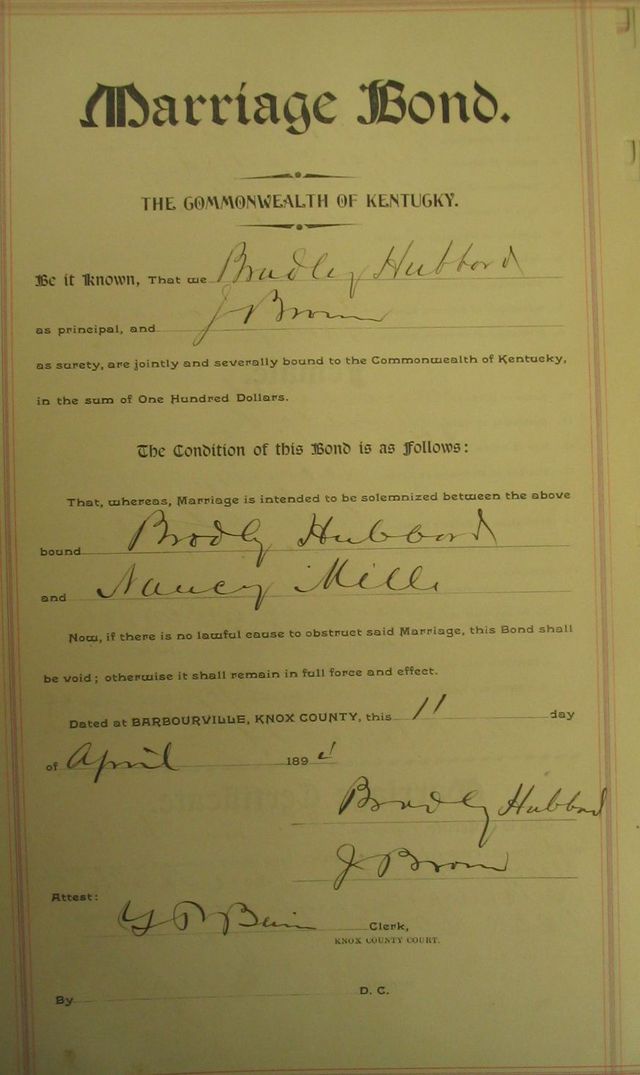 Marriage Bond.
THE COMMONWEALTH OF KENTUCKY.
Be it Known, That we Bradley Hubbord
J Brown
as principal, and
as surety, are jointly and severally bound to the Commonwealth of Kentucky,
in the sum of One Hundred Dollars.
The Condition of this Bond is as Follows:
That, whereas, Marriage is intended to be solemnized between the above
bound Brodly Hubbord
and Nancy Mills
Now, if there is no lawful cause to obstruct said Marriage, this Bond shall
be void; otherwise it shall remain in full force and effect.
Dated at BARBOURVILLE, KNOX COUNTY, this 11 day
of April 189
Bradly Hubbard
J Brown
Attest:
Clerk,
KNOX COUNTY COURT.
By D. C.